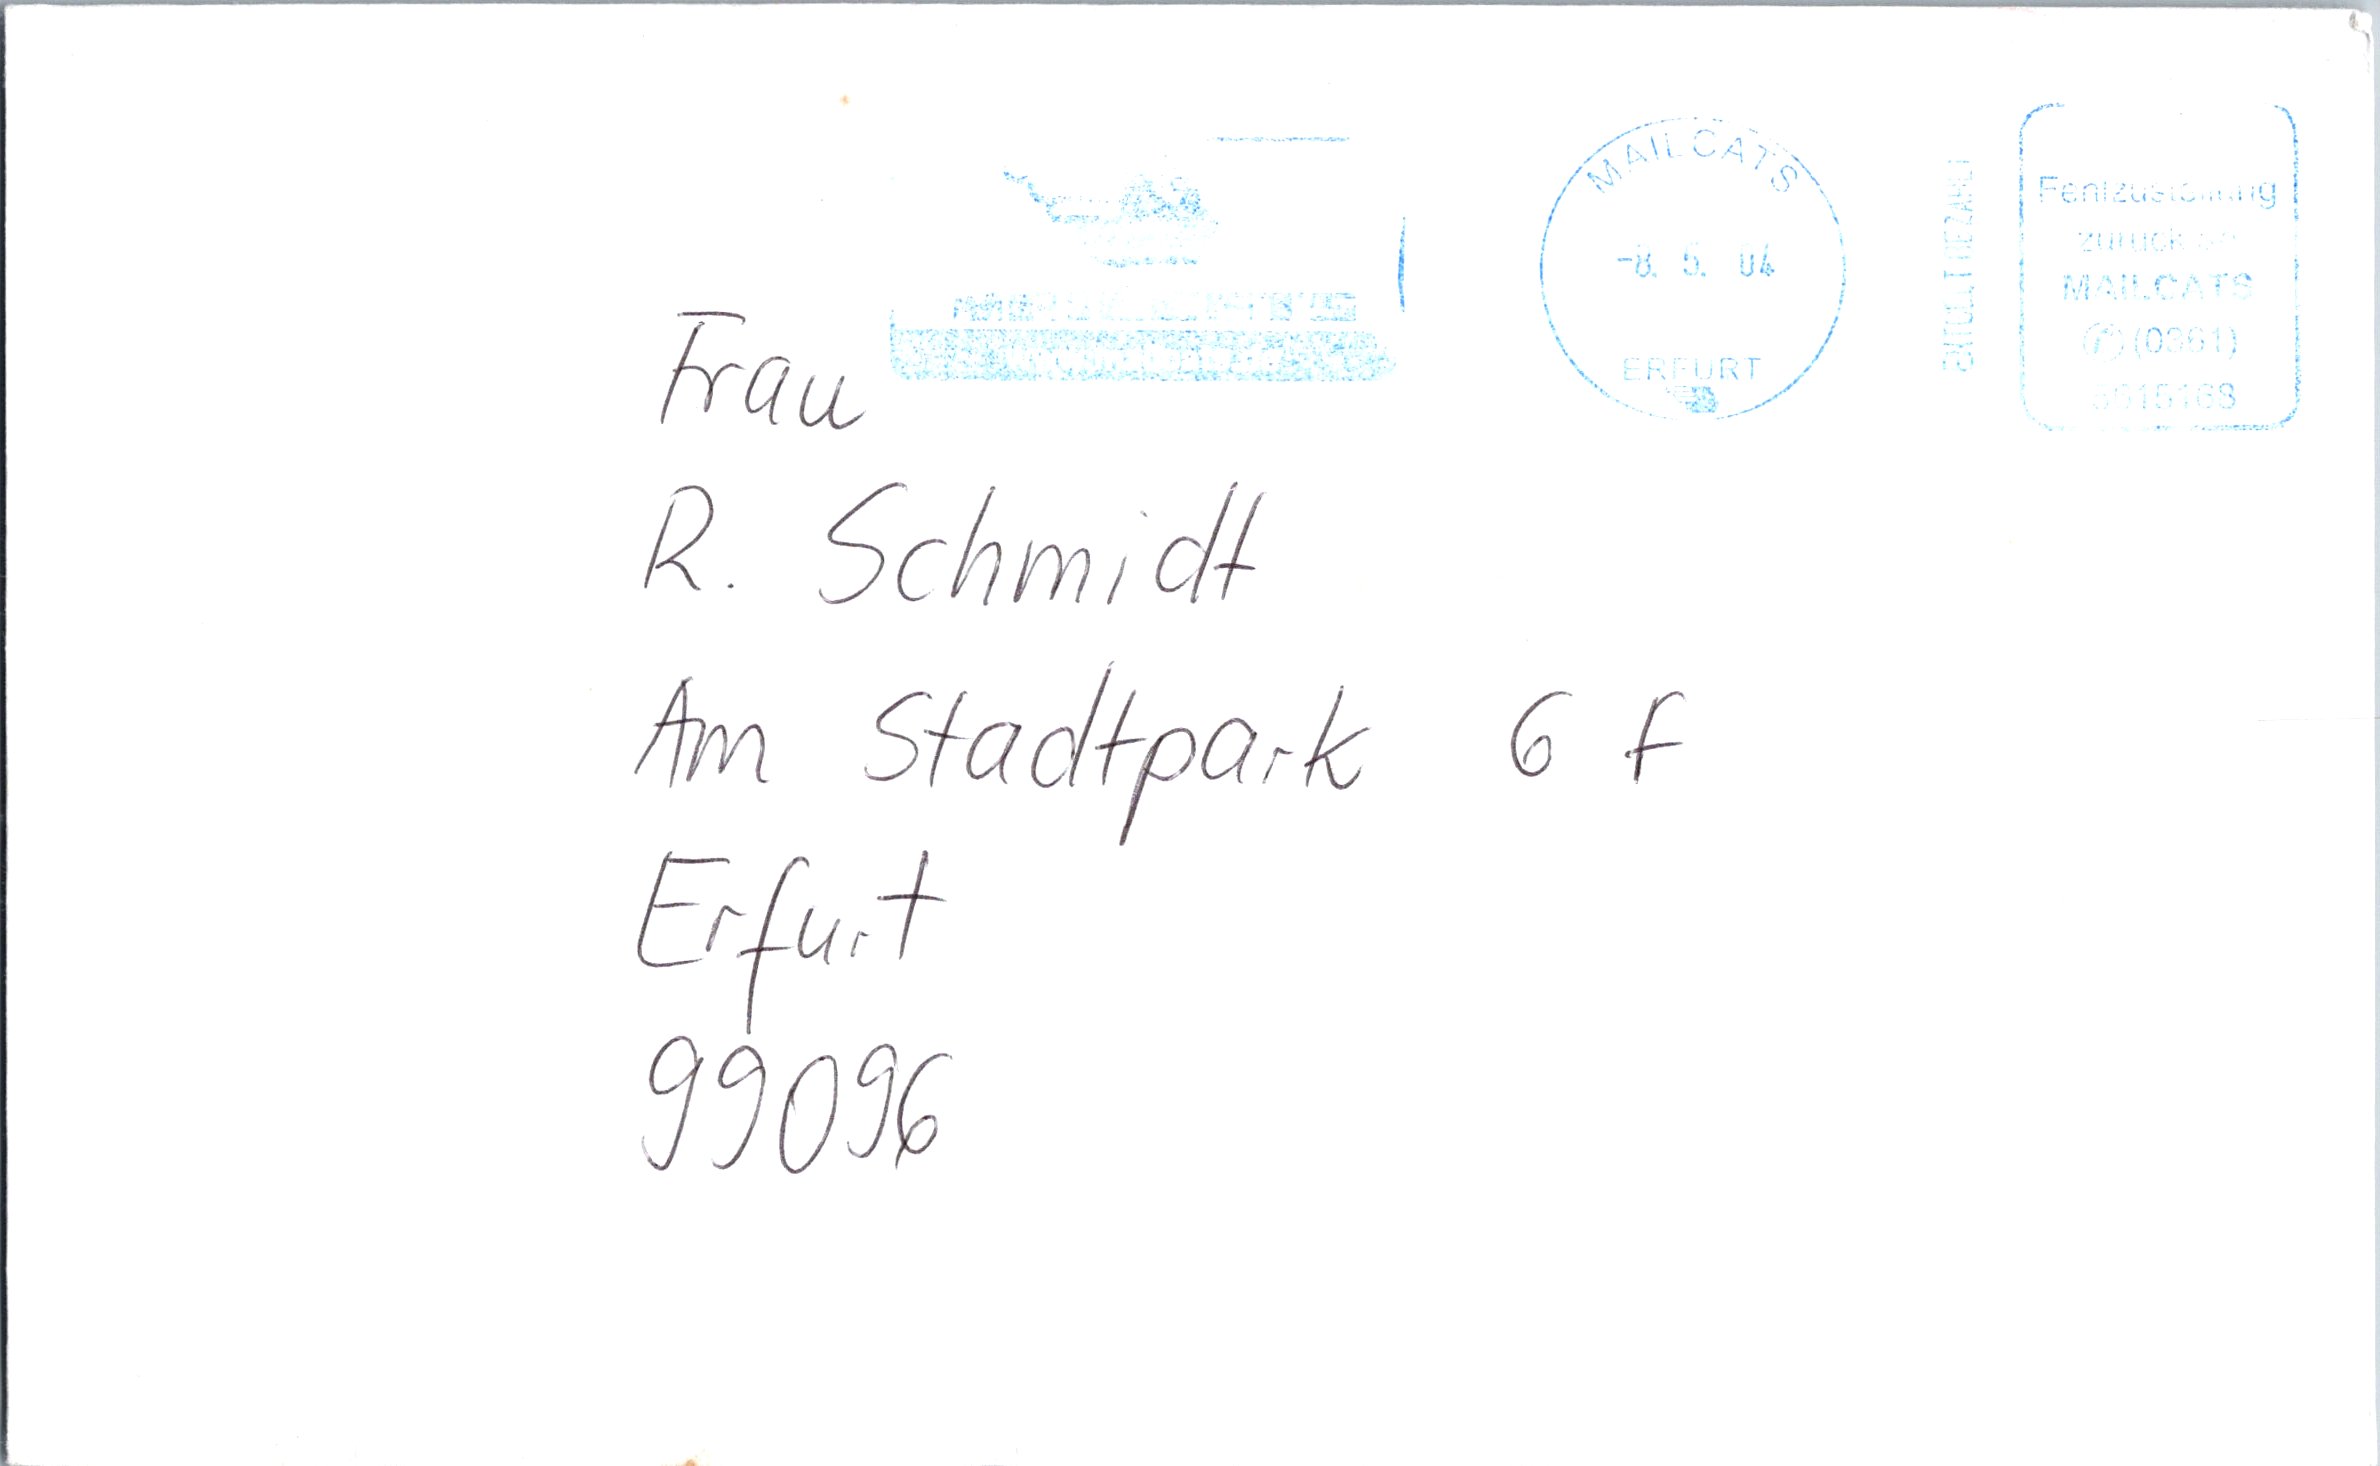 MAILCATS
-8. 5. 04
ERFURT
Fehlzustellung
zurück an
MAILCATS
(0361)
Frau
R. Schmidt
Am Stadtpark 6 f
Erfurt
99096